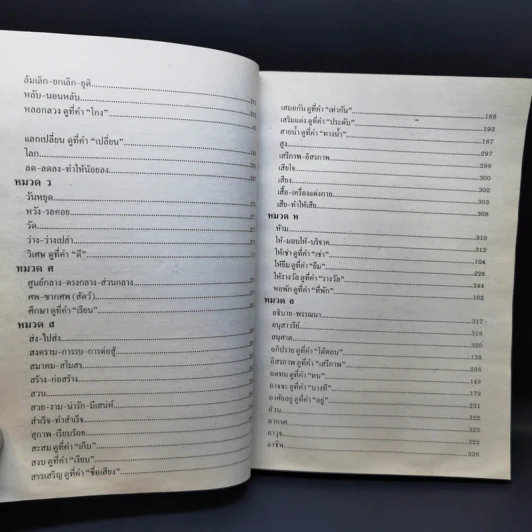 ล้มเลิก-ยกเลิก-ยุติ
หลับ-นอนหลับ
หลอกลวง ดูที่คำ "โกง"
แลกเปลี่ยน ดูที่คำ "เปลี่ยน"
โลก
ลด-ลดลง-ทำให้น้อยลง
หมวด ว
วันหยุด
หวัง-รอคอย
วัด
ว่าง-ว่างเปล่า
วิเศษ ดูที่คำ "ดี"
หมวด ศ
ศูนย์กลาง-ตรงกลาง-ส่วนกลาง
ศพ-ซากศพ (สัตว์)
ศึกษา ดูที่คำ "เรียน"
หมวด ส
ส่ง-ไปส่ง
สงคราม-การรบ-การต่อสู้
สมาคม-สโมสร
สร้าง-ก่อสร้าง
สวน
สวย-งาม-น่ารัก-มีเสน่ห์
สำเร็จ-ทำสำเร็จ
สุภาพ-เรียบร้อย
สะสม ดูที่คำ "เก็บ"
สงบ ดูที่คำ "เงียบ"
สรรเสริญ ดูที่คำ "ชื่อเสียง"
เสมอกัน ดูที่คำ "เท่ากัน" 166
เสริมแต่ง ดูที่คำ "ประดับ" 193
สายน้ำ ดูที่คำ "ทางน้ำ" 167
สูง 297
เสรีภาพ-อิสรภาพ 298
เสียใจ 300
เสียง 302
เสื้อ-เครื่องแต่งกาย 303
เสีย-ทำให้เสีย 308
หมวด ห
ห้าม 310
ให้-มอบให้-บริจาค 312
ให้เช่า ดูที่คำ "เช่า" 124
ให้ยืม ดูที่คำ "ยืม" 226
ให้รางวัล ดูที่คำ "รางวัล" 244
หอพัก ดูที่คำ "ที่พัก" 162
หมวด อ
อธิบาย-พรรณนา 317
อนุสาวรีย์ 319
อนุศาต 320
อภิปราย ดูที่คำ "โต้ตอบ" 138
อิสรภาพ ดูที่คำ "เสรีภาพ" 298
อดทน ดูที่คำ "ทน" 149
อาจจะ ดูที่คำ "บางที" 179
อาศัยอยู่ ดูที่คำ "อยู่" 231
อ้วน 322
อากาศ 323
อาวุธ 325
อาชีพ 326